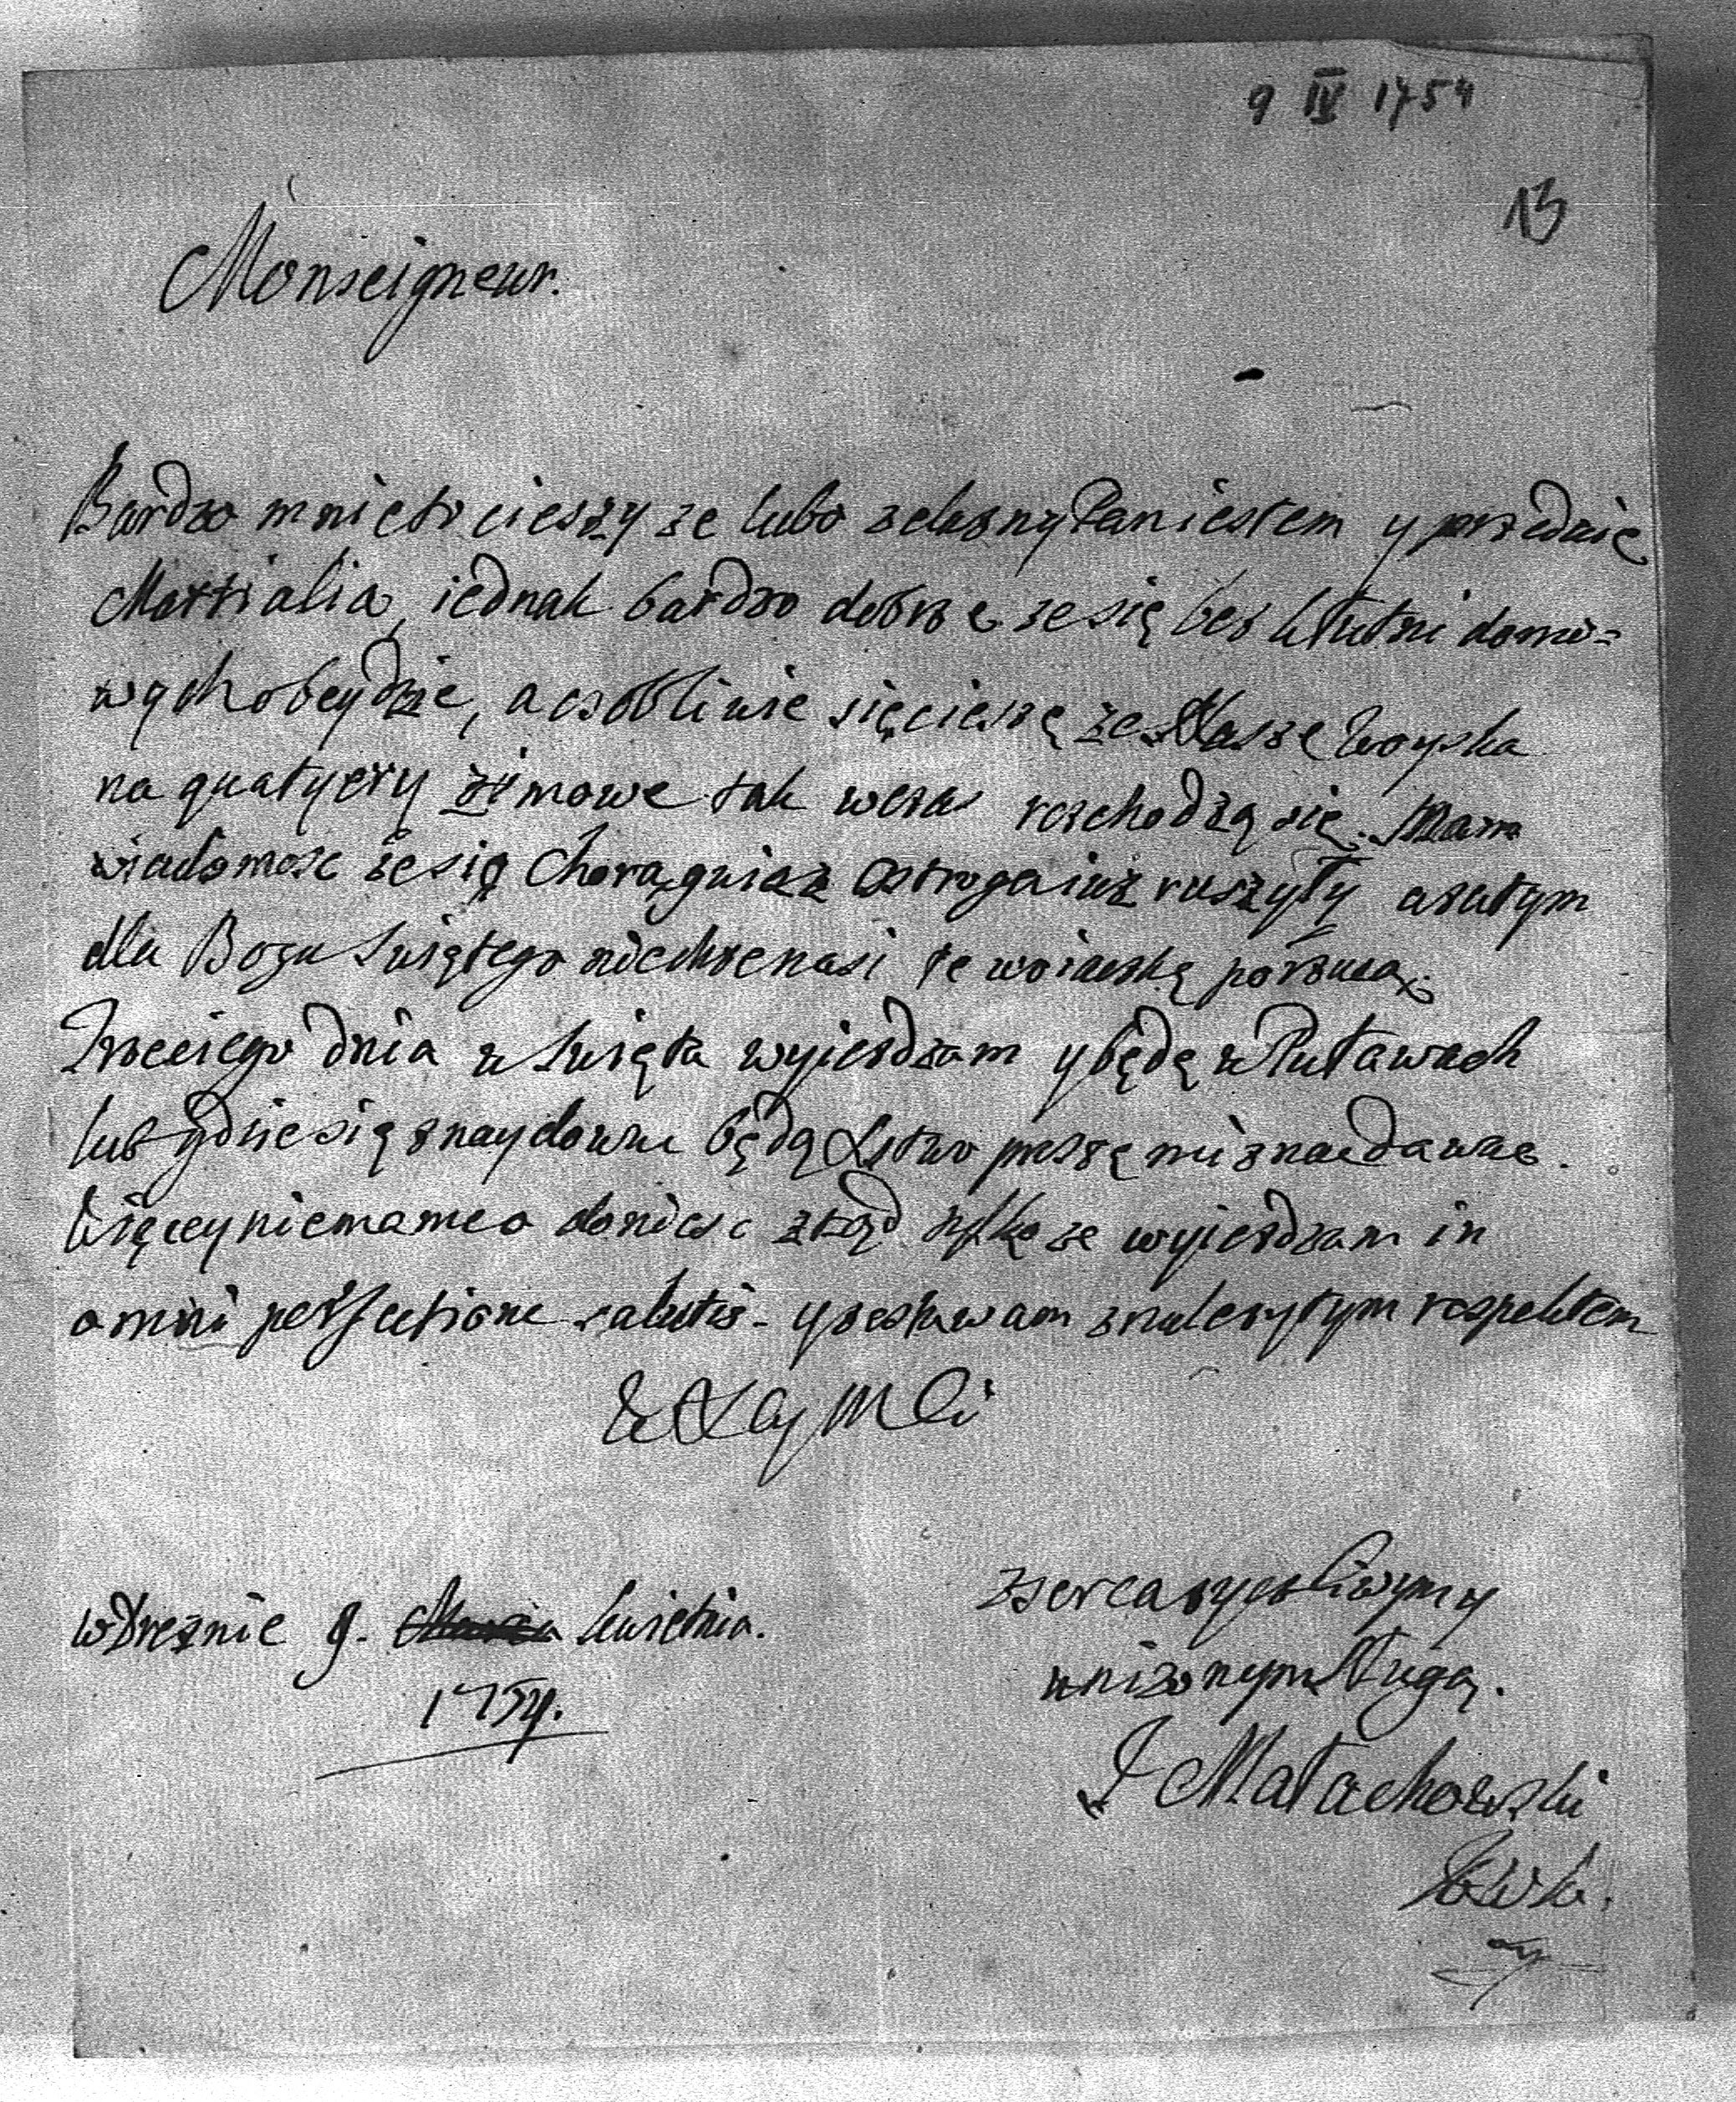 9 IV 1754
13
Monseigneur.
Bardzo mnie to cieszy ze lubo zelazny Pan iestem y
Martialia, iednak bardzo dobrze ze się bez kłutni domo=
wych obeydzie, a osobliwie się cieszę ze Nasze Woyska
na quatyery zimowe tak wczas rozchodzą się. Mam
wiadomosc ze się Chorągwie z Ostroga iuz ruszyły a zatym
dla Boga Swiętego niech ze nasi te woiaczkę porzucą.
Trzeciego dnia w Swięta wyiezdzam y będę w Puławach
lub gdzie się znaydować będą proszę mi znac dawac.
Więcey niemam co doniesc ztąd tylko ze wyiezdzam in
omni perfectione salutis - y zostawam z nalezytym respektem
zserca zyczliwym y
unizonym Sługą.
w Dreznie 9. Kwietnia.
1754.
J Małachowski
KWK.